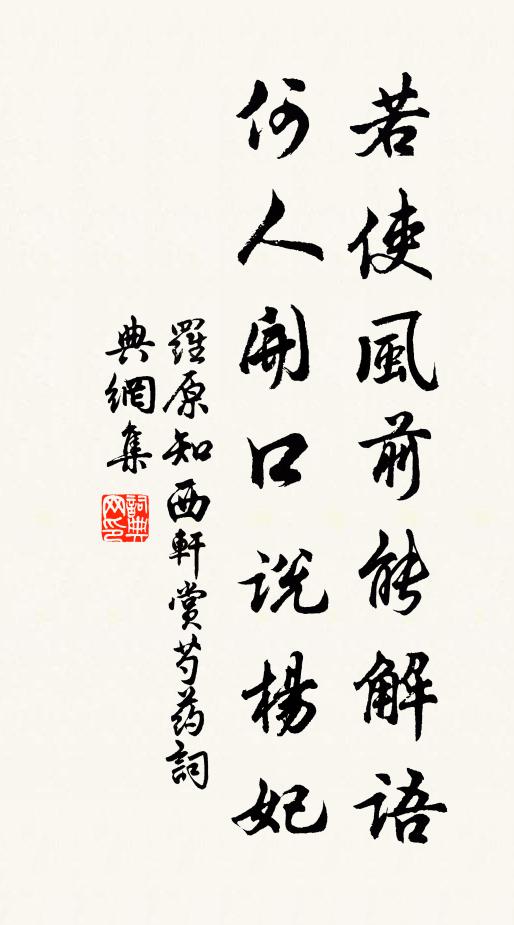 若使風前能解語
何人開口說楊妃
羅原知西軒賞芍药詞
典網集
詞典
网印